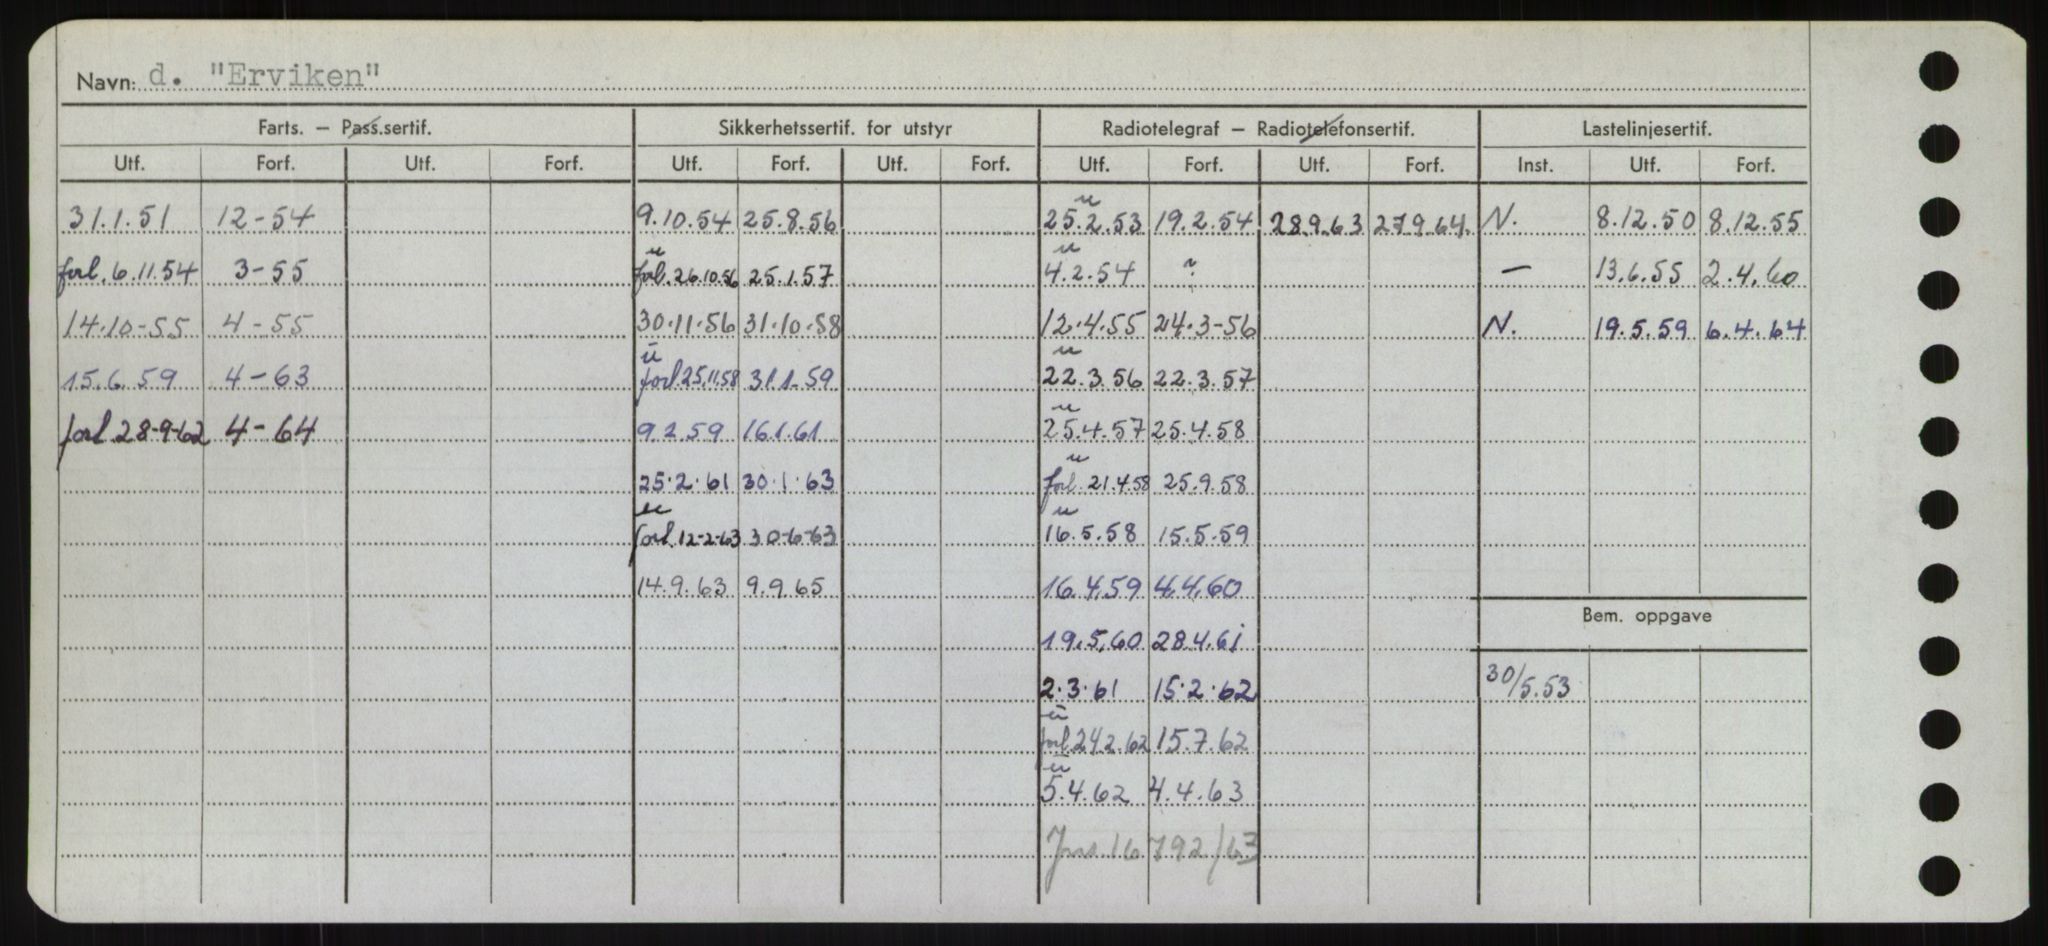 Navn: d. "Erviken"
Farts. – Pass.sertif. Sikkerhetssertif. for utstyr Radiotelegraf – Radiotelefonsertif. Lastelinjesertif.
Utf. Forf. Utf. Forf. Utf. Forf. Utf. Forf. Utf. Forf. Utf. Forf. Inst. Utf. Forf.
u
31.1.51 12-54 9.10.54 25.8.56 25.2.53 19.2.54 28.9.63 27.9.64. N. 8.12.50 8.12.55
u u
forl. 6.11.54 3-55 forl. 26.10.56 25.1.57 4.2.54 ? — 13.6.55 2.4.60
14.10-55 4-55 30.11.56 31.10.58 12.4.55 24.3-56 N. 19.5.59 6.4.64
u u
15.6.59 4-63 forl. 25.11.58 31.1.59 22.3.56 22.3.57
u
forl. 28-9-62 4-64 9.2.59 16.1.61 25.4.57 25.4.58
u
25.2.61 30.1.63 forl. 21.4.58 25.9.58
u u
forl. 12-2-63 30-6-63 16.5.58 15.5.59
14.9.63 9.9.65 16.4.59 4.4.60
Bem. oppgave
19.5.60 28.4.61
2.3.61 15.2.62 30/5.53
u
forl. 24.2.62 15.7.62
u
5.4.62 4.4.63
16792/63